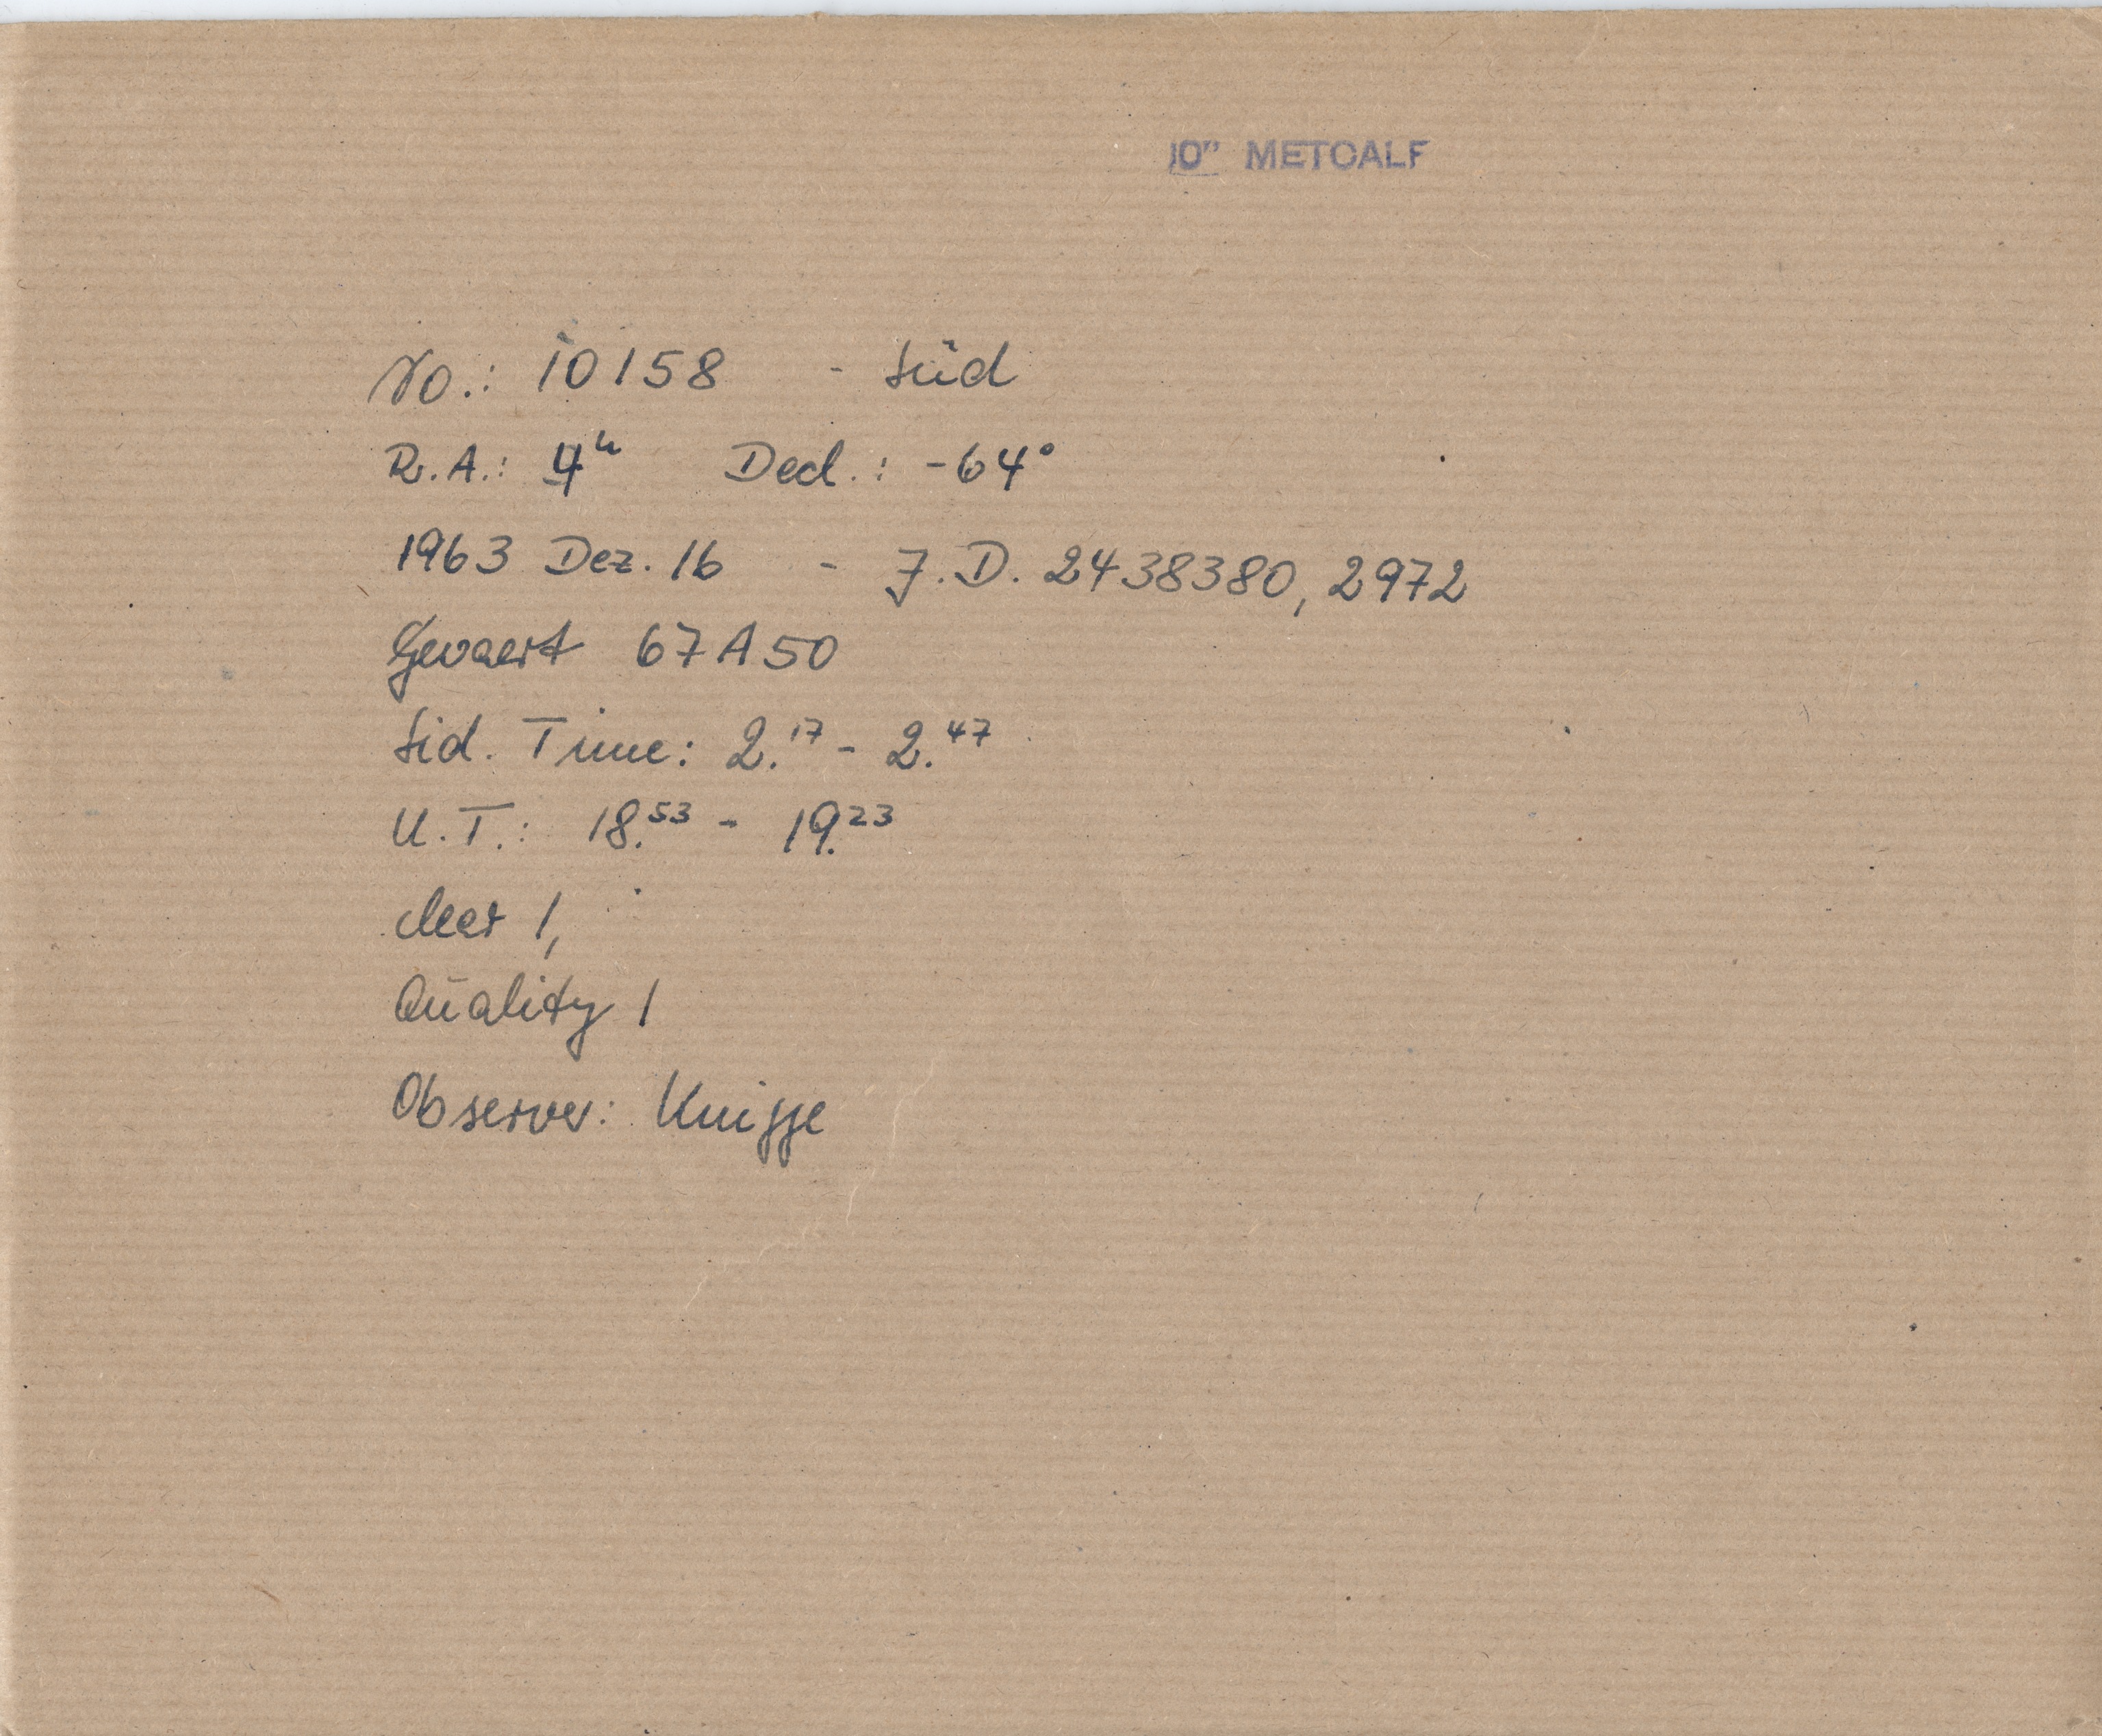 10" METCALF
No.: 10158 - Süd
R.A.: 4ʰ Decl.: -64°
1963 Dez. 16 - J.D. 2438380,2972
Gevaert 67A50
Sid. Time: 2.¹⁷ - 2.⁴⁷
U.T.: 18.⁵³ - 19.²³
clear 1,
Quality 1
Observer: Knigge